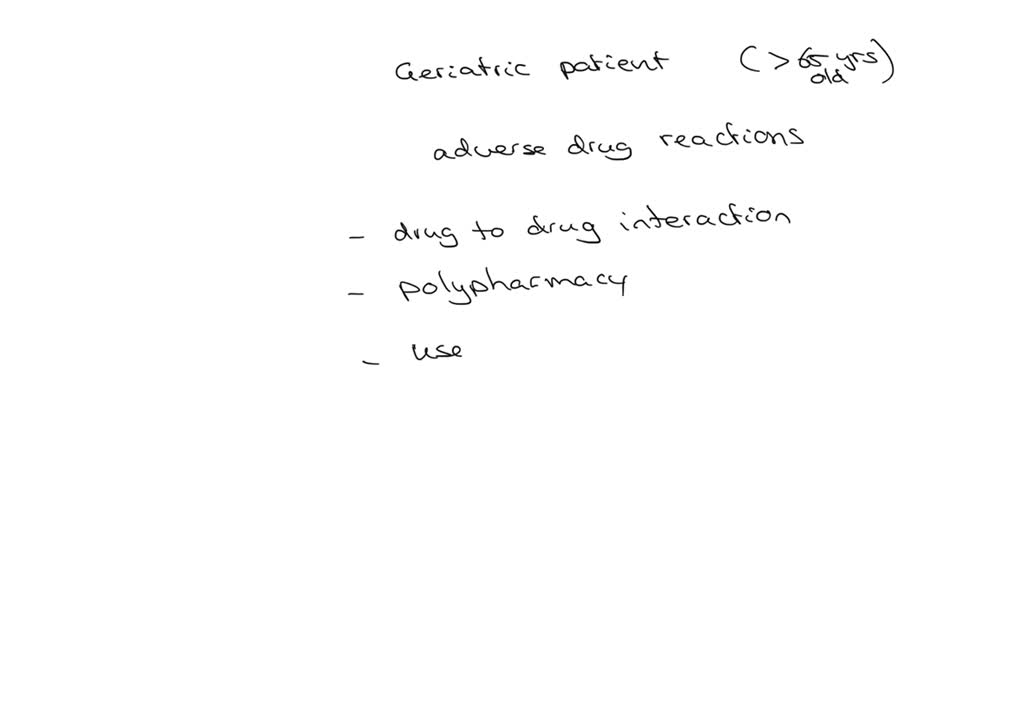 Geriatric patient (> 65 yrs old)
adverse drug reactions
- drug to drug interaction
- polypharmacy
- use